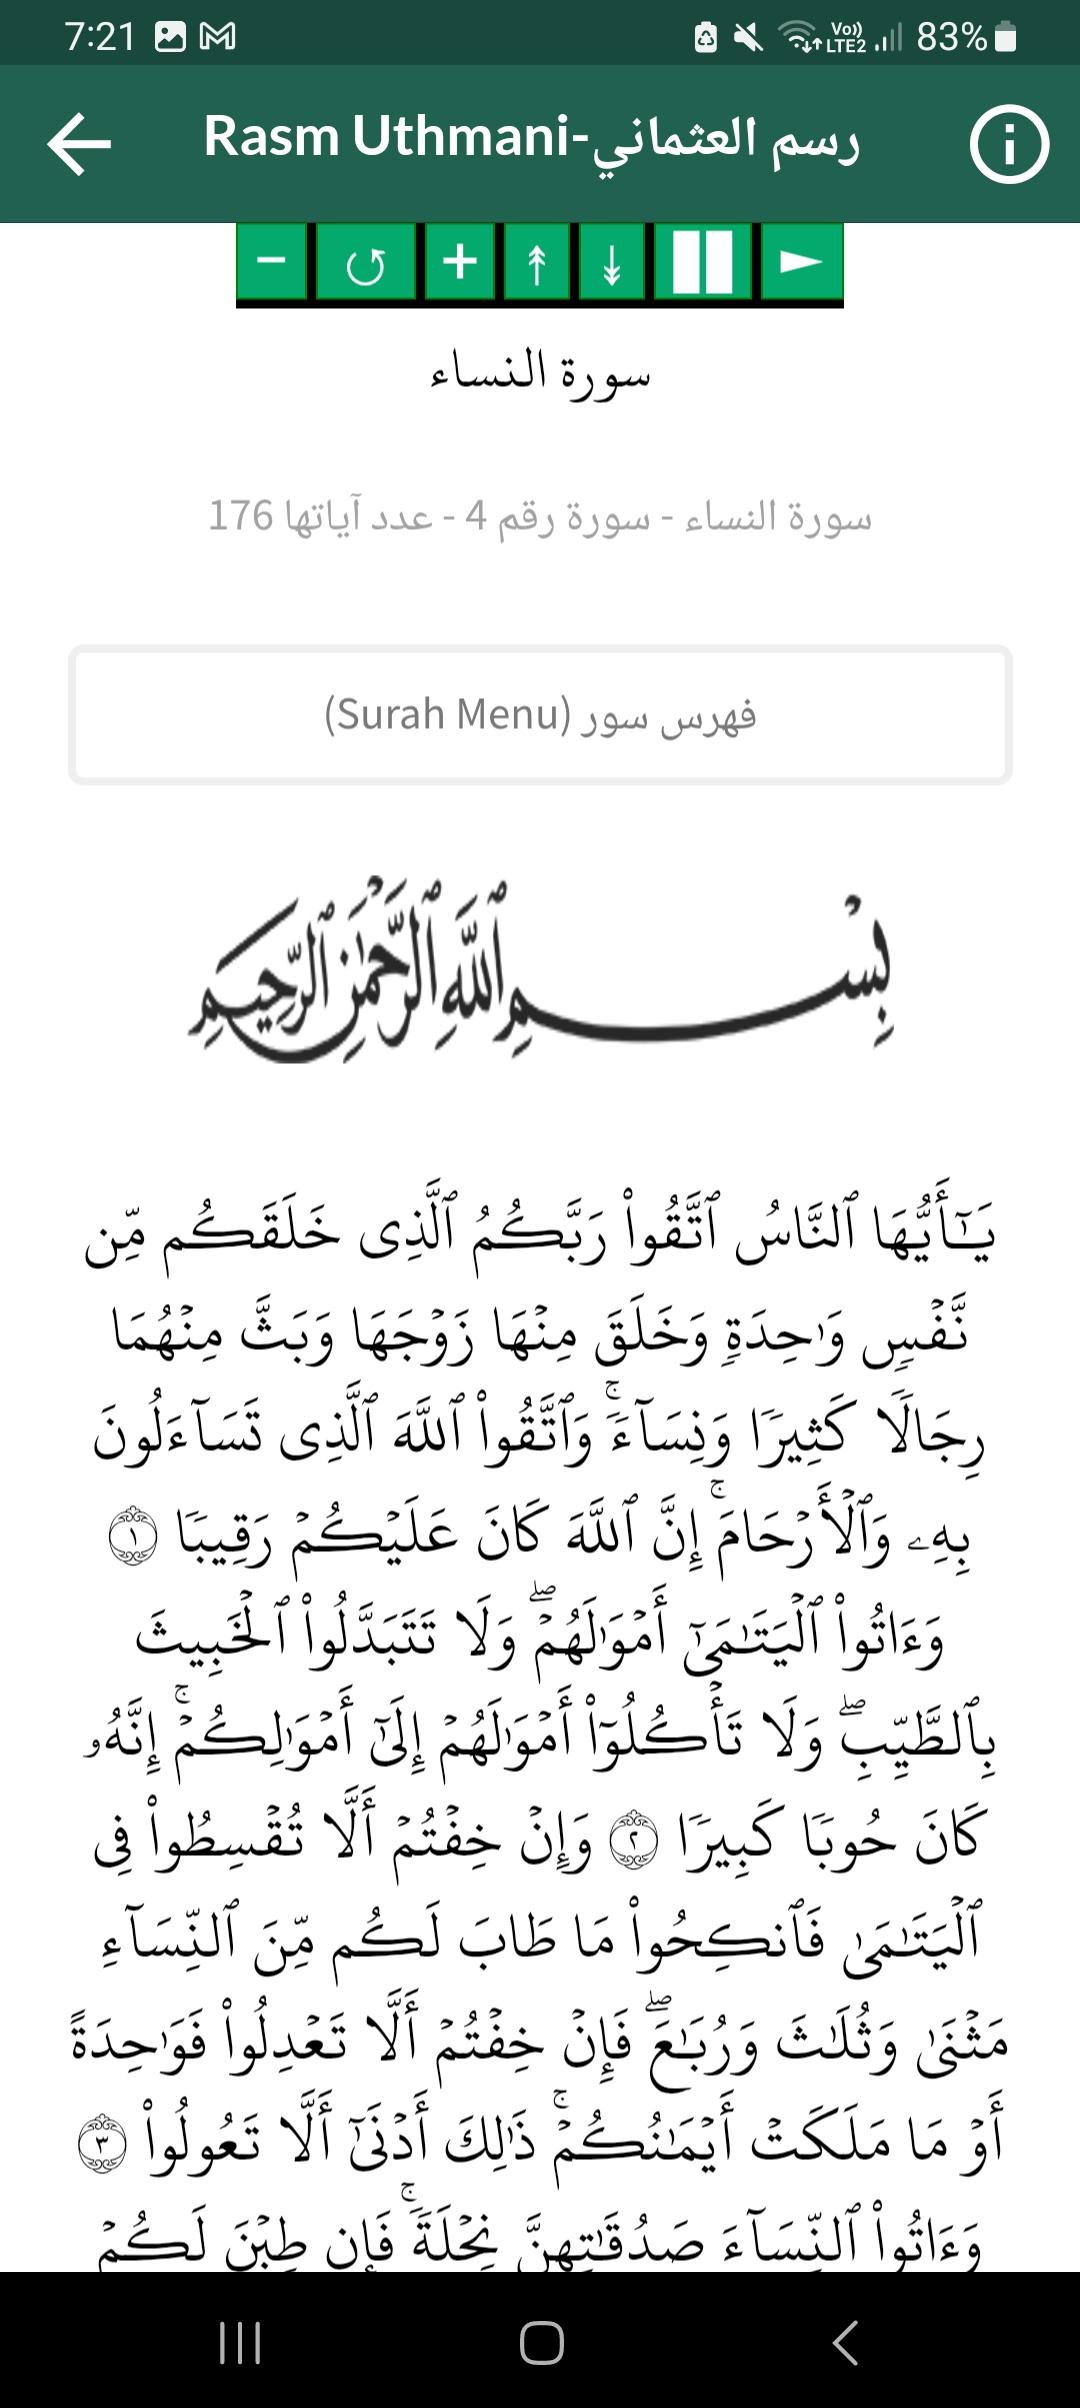 7:21
Vo)) LTE2 83%
Rasm Uthmani-رسم العثماني
سورة النساء
سورة النساء - سورة رقم 4 - عدد آياتها 176
فهرس سور (Surah Menu)
بِسْمِ ٱللَّهِ ٱلرَّحْمَٰنِ ٱلرَّحِيمِ
يَـٰٓأَيُّهَا ٱلنَّاسُ ٱتَّقُوا۟ رَبَّكُمُ ٱلَّذِى خَلَقَكُم مِّن
نَّفْسٍۢ وَٰحِدَةٍۢ وَخَلَقَ مِنْهَا زَوْجَهَا وَبَثَّ مِنْهُمَا
رِجَالًۭا كَثِيرًۭا وَنِسَآءًۭ ۚ وَٱتَّقُوا۟ ٱللَّهَ ٱلَّذِى تَسَآءَلُونَ
بِهِۦ وَٱلْأَرْحَامَ ۚ إِنَّ ٱللَّهَ كَانَ عَلَيْكُمْ رَقِيبًۭا ١
وَءَاتُوا۟ ٱلْيَتَـٰمَىٰٓ أَمْوَٰلَهُمْ ۖ وَلَا تَتَبَدَّلُوا۟ ٱلْخَبِيثَ
بِٱلطَّيِّبِ ۖ وَلَا تَأْكُلُوٓا۟ أَمْوَٰلَهُمْ إِلَىٰٓ أَمْوَٰلِكُمْ ۚ إِنَّهُۥ
كَانَ حُوبًۭا كَبِيرًۭا ٢ وَإِنْ خِفْتُمْ أَلَّا تُقْسِطُوا۟ فِى
ٱلْيَتَـٰمَىٰ فَٱنكِحُوا۟ مَا طَابَ لَكُم مِّنَ ٱلنِّسَآءِ
مَثْنَىٰ وَثُلَـٰثَ وَرُبَـٰعَ ۖ فَإِنْ خِفْتُمْ أَلَّا تَعْدِلُوا۟ فَوَٰحِدَةً
أَوْ مَا مَلَكَتْ أَيْمَـٰنُكُمْ ۚ ذَٰلِكَ أَدْنَىٰٓ أَلَّا تَعُولُوا۟ ٣
وَءَاتُوا۟ ٱلنِّسَآءَ صَدُقَـٰتِهِنَّ نِحْلَةًۭ ۚ فَإِن طِبْنَ لَكُمْ